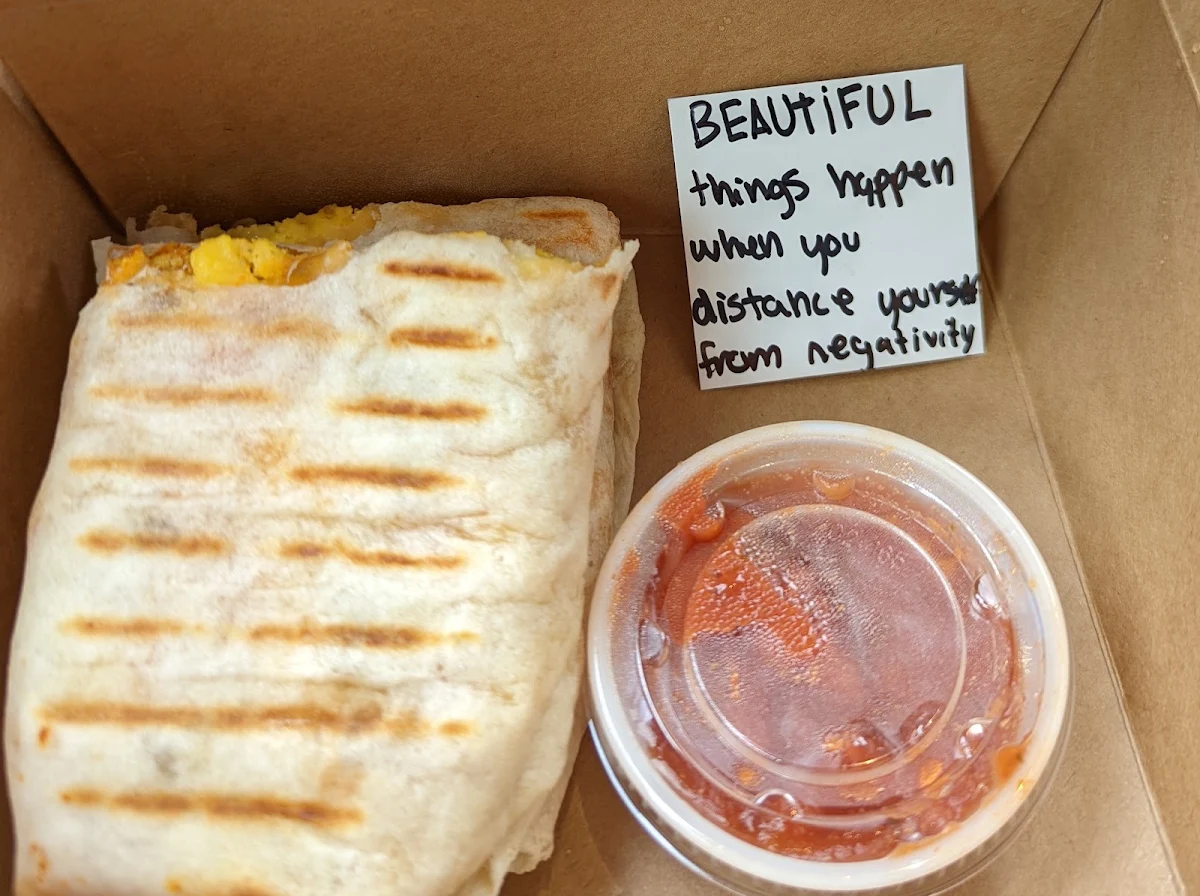 BEAUtiFUL
things happen
when you
distance yourself
from negativity